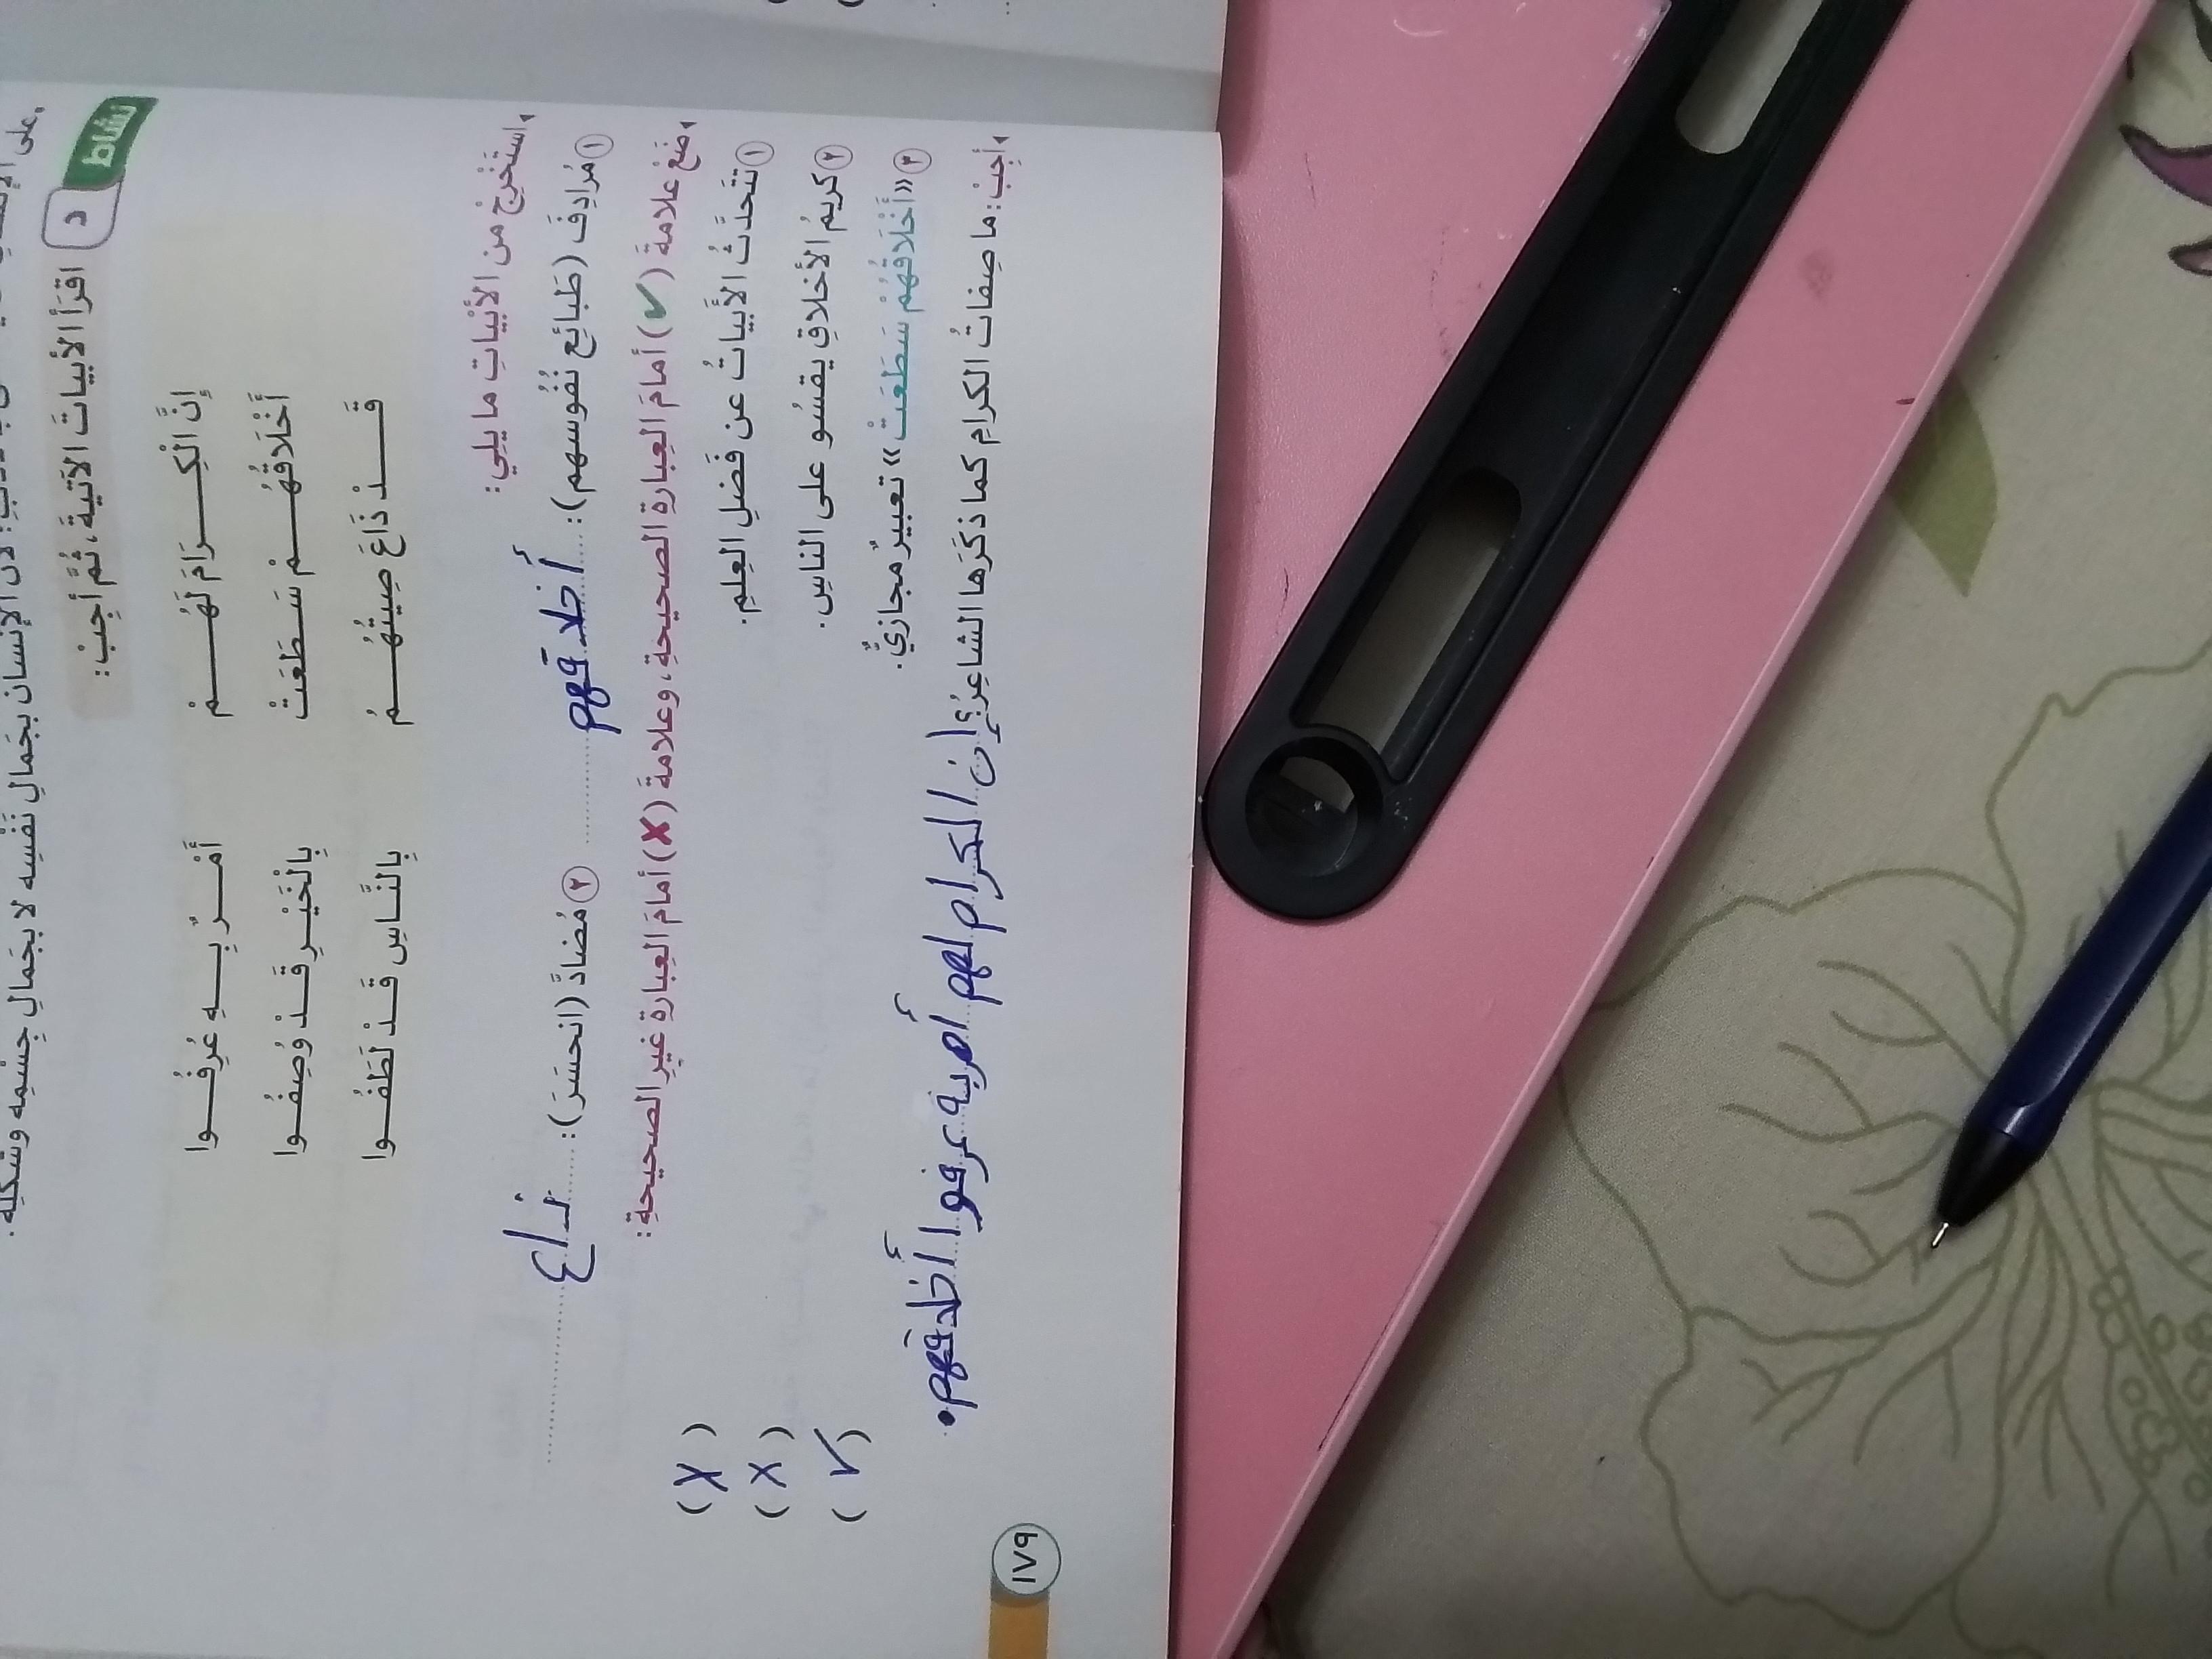 على الإنسان
لأن الإنسان بجَمالِ نَفْسِه لا بجَمالِ جِسْمِه وشَكلِه.
نشاط د اقرَأ الأبياتَ الآتيةَ، ثُمَّ أجِبْ:
إِنَّ الْكِرَامَ لَهُمْ أَمْرٌ بِهِ عُرِفُوا
أَخْلَاقُهُمْ سَطَعَتْ بِالْخَيْرِ قَدْ وُصِفُوا
قَدْ ذَاعَ صِيتُهُمُ بِالنَّاسِ قَدْ لَطَفُوا
استَخْرِجْ من الأبْياتِ ما يلِي:
١ مُرادِفَ (طَبائِع نُفُوسهم): أَخلاقَهم ٢ مُضادَّ (انحسَرَ): ذاع
ضَعْ علامةَ (✓) أمامَ العِبارةِ الصحيحةِ، وعلامةَ (✗) أمامَ العِبارةِ غيرِ الصحيحةِ:
١ تتحدَّثُ الأبْياتُ عن فَضلِ العِلمِ. (X)
٢ كريمُ الأخلاقِ يقسُو على الناسِ. (X)
٣ «أَخْلَاقُهُمْ سَطَعَتْ» تعبيرٌ مجازيٌّ. (✓)
أجِبْ: ما صِفاتُ الكرامِ كما ذكَرَها الشاعِرُ؟ إن الكرام لهم أمر به عرفوا أخلاقَهم.
١٧٩